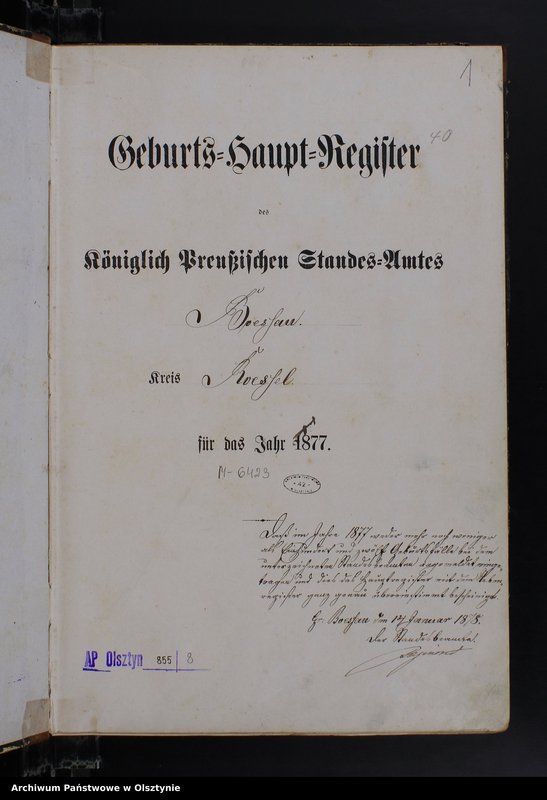 1
40
Geburts-Haupt-Register
des
Königlich Preußischen Standes-Amtes
Boessau.
Kreis Roessel.
für das Jahr 1877.
M-6423
Daß im Jahre 1877 weder mehr noch weniger
als Einhundert und zwölf Geburtsfälle bei dem
unterzeichneten Standesbeamten angemeldet einge-
tragen und dies das Hauptregister mit dem Neben-
register ganz genau übereinstimmt bescheinigt
Gr. Boessau den 14 Januar 1878.
Der Standesbeamte.
AP Olsztyn 855 | 8
Archiwum Państwowe w Olsztynie